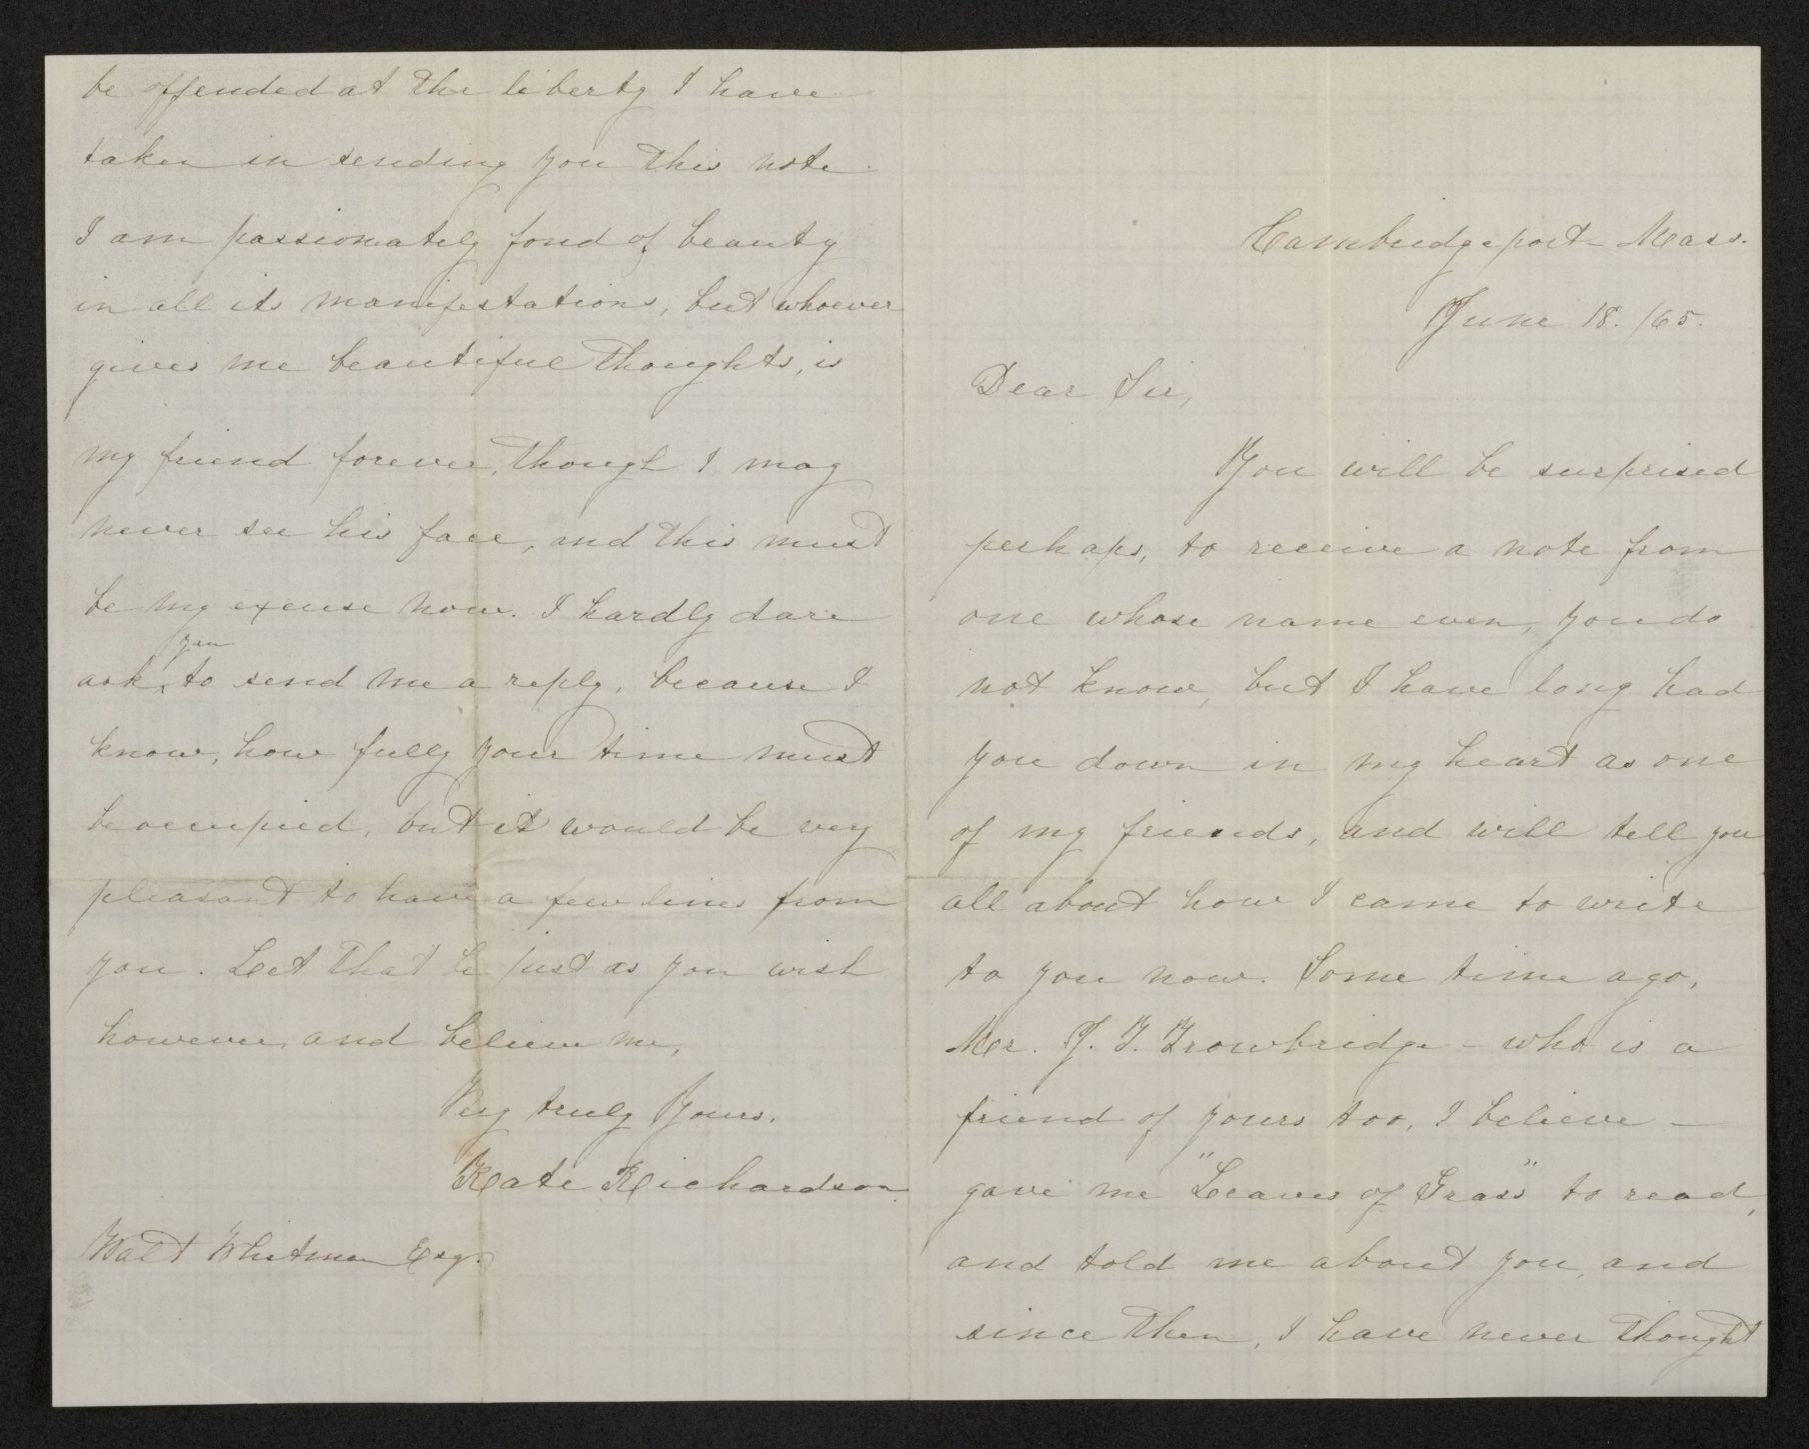 Cambridgeport - Mass.
June 18. /65.
Dear Sir,
You will be surprised
perhaps, to receive a note from
one whose name even, you do
not know, but I have long had
you down in my heart as one
of my friends, and will tell you
all about how I came to write
to you now. Some time ago,
Mr. J. T. Trowbridge - who is a
friend of yours too, I believe -
gave me "Leaves of Grass" to read,
and told me about you, and
since then, I have never thought
be offended at the liberty I have
taken in sending you this note.
I am passionately fond of beauty
in all its manifestations, but whoever
gives me beautiful thoughts, is
my friend forever, though I may
never see his face, and this must
be my excuse now. I hardly dare
you
ask to send me a reply, because I
know, how fully your time must
be occupied, but it would be very
pleasant to have a few lines from
you. Let that be just as you wish
however, and believe me,
Very truly Yours.
Kate Richardson.
Walt Whitman Esq.